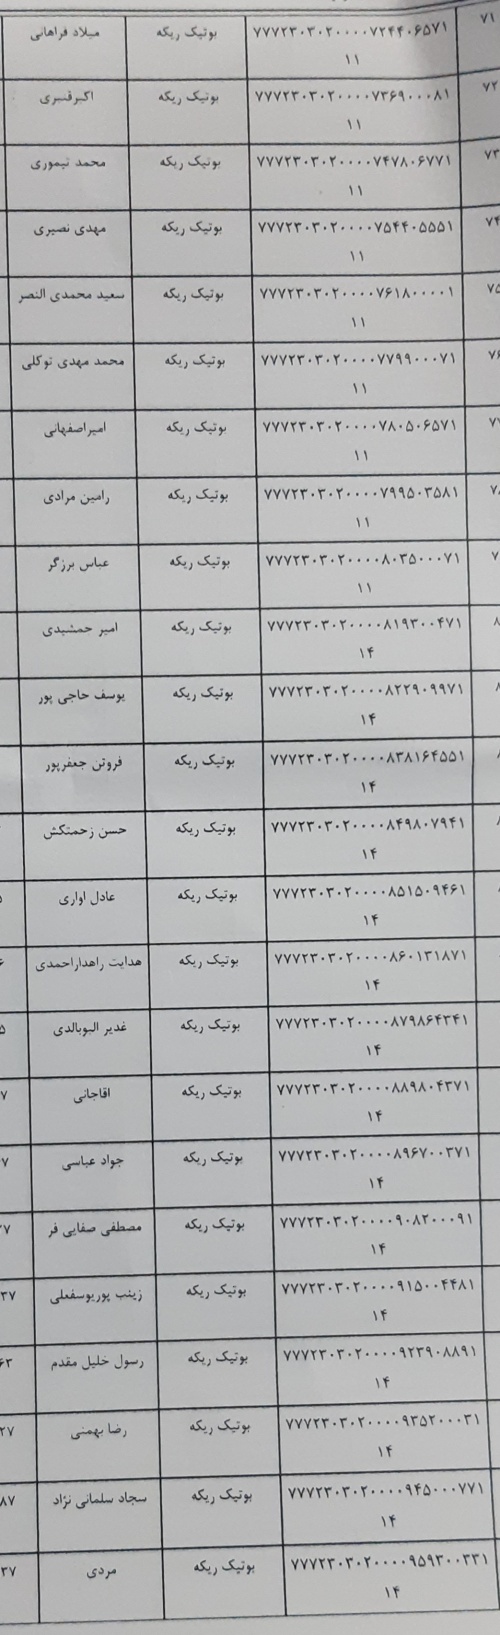 ۷۱ ۷۷۷۲۳۰۳۰۲۰۰۰۰۷۲۴۴۰۶۵۷۱ بوتیک ریکه میلاد فراهانی
۱۱
۷۲ ۷۷۷۲۳۰۳۰۲۰۰۰۰۷۳۶۹۰۰۰۸۱ بوتیک ریکه اکبرقنبری
۱۱
۷۳ ۷۷۷۲۳۰۳۰۲۰۰۰۰۷۴۷۸۰۶۷۷۱ بوتیک ریکه محمد تیموری
۱۱
۷۴ ۷۷۷۲۳۰۳۰۲۰۰۰۰۷۵۴۴۰۵۵۵۱ بوتیک ریکه مهدی نصیری
۱۱
۷۵ ۷۷۷۲۳۰۳۰۲۰۰۰۰۷۶۱۸۰۰۰۰۱ بوتیک ریکه سعید محمدی النصر
۱۱
۷۶ ۷۷۷۲۳۰۳۰۲۰۰۰۰۷۷۹۹۰۰۰۷۱ بوتیک ریکه محمد مهدی توکلی
۱۱
۷۷۷۲۳۰۳۰۲۰۰۰۰۷۸۰۵۰۶۵۷۱ بوتیک ریکه امیراصفهانی
۱۱
۷۷۷۲۳۰۳۰۲۰۰۰۰۷۹۹۵۰۳۵۸۱ بوتیک ریکه رامین مرادی
۱۱
۷۷۷۲۳۰۳۰۲۰۰۰۰۸۰۳۵۰۰۰۷۱ بوتیک ریکه عباس برزگر
۱۱
۷۷۷۲۳۰۳۰۲۰۰۰۰۸۱۹۳۰۰۴۷۱ بوتیک ریکه امیر جمشیدی
۱۴
۷۷۷۲۳۰۳۰۲۰۰۰۰۸۲۲۹۰۹۹۷۱ بوتیک ریکه یوسف حاجی پور
۱۴
۷۷۷۲۳۰۳۰۲۰۰۰۰۸۳۸۱۶۴۵۵۱ بوتیک ریکه فروتن جعفرپور
۱۴
۷۷۷۲۳۰۳۰۲۰۰۰۰۸۴۹۸۰۷۹۴۱ بوتیک ریکه حسن زحمتکش
۱۴
۷۷۷۲۳۰۳۰۲۰۰۰۰۸۵۱۵۰۹۴۶۱ بوتیک ریکه عادل اواری
۱۴
۷۷۷۲۳۰۳۰۲۰۰۰۰۸۶۰۱۳۱۸۷۱ بوتیک ریکه هدایت راهداراحمدی
۱۴
۷۷۷۲۳۰۳۰۲۰۰۰۰۸۷۹۸۶۴۳۴۱ بوتیک ریکه غدیر البوبالدی
۱۴
۷۷۷۲۳۰۳۰۲۰۰۰۰۸۸۹۸۰۴۳۷۱ بوتیک ریکه اقاجانی ۷
۱۴
۷۷۷۲۳۰۳۰۲۰۰۰۰۸۹۶۷۰۰۳۷۱ بوتیک ریکه جواد عباسی ۷
۱۴
۷۷۷۲۳۰۳۰۲۰۰۰۰۹۰۸۲۰۰۰۹۱ بوتیک ریکه مصطفی صفایی فر ۷
۱۴
۷۷۷۲۳۰۳۰۲۰۰۰۰۹۱۵۰۰۴۴۸۱ بوتیک ریکه زینب پوریوسفعلی ۳۷
۱۴
۷۷۷۲۳۰۳۰۲۰۰۰۰۹۲۳۹۰۸۸۹۱ بوتیک ریکه رسول خلیل مقدم ۶۳
۱۴
۷۷۷۲۳۰۳۰۲۰۰۰۰۹۳۵۲۰۰۰۳۱ بوتیک ریکه رضا بهمنی ۲۷
۱۴
۷۷۷۲۳۰۳۰۲۰۰۰۰۹۴۵۰۰۰۷۷۱ بوتیک ریکه سجاد سلمانی نژاد ۸۷
۱۴
۷۷۷۲۳۰۳۰۲۰۰۰۰۹۵۹۳۰۰۳۳۱ بوتیک ریکه مردی ۳۷
۱۴